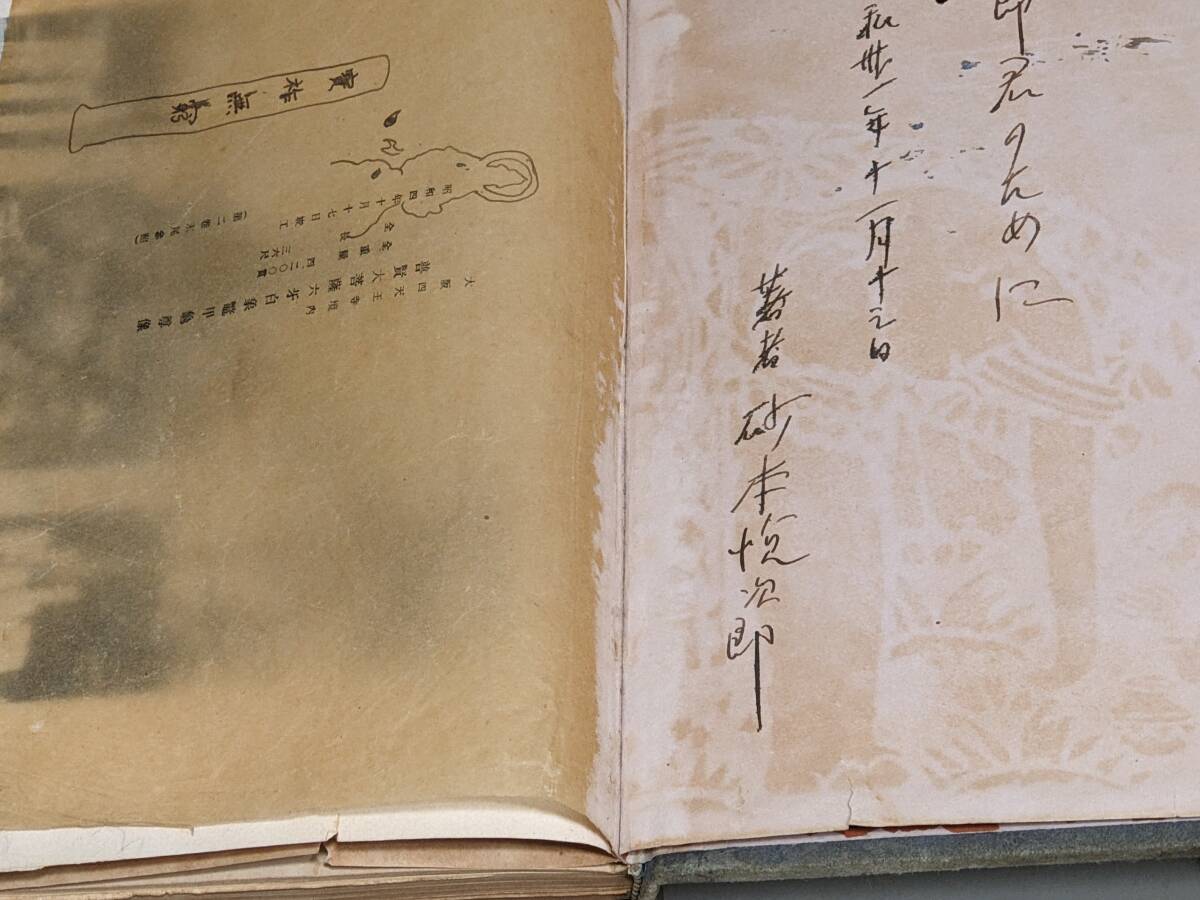 郎君のために
和卅一年十一月十三日
著者 砂本悦次郎
寶祚無窮
大阪四天王寺境内
普賢大菩薩六牙白象籠甲亀尊像
全重量 四、二〇〇貫
全長 三六尺
昭和四年十月十七日竣工
(第二巻末尾参照)